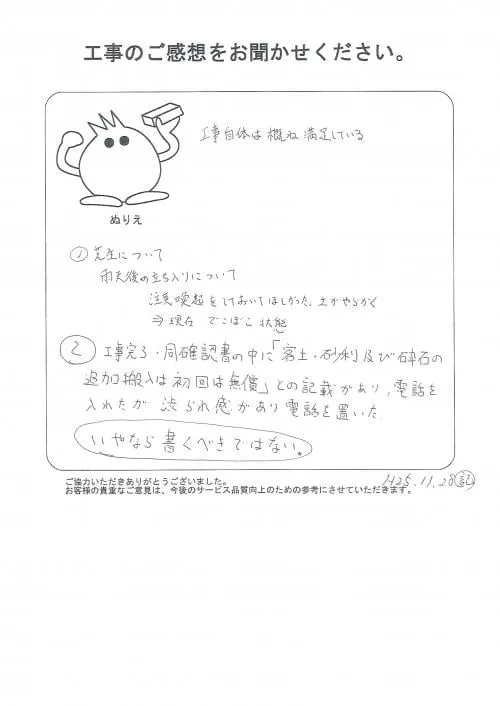 工事のご感想をお聞かせください。
工事自体は概ね満足している
ぬりえ
① 芝生について
雨天後の立ち入りについて
注意喚起をしておいてほしかった。土がやらかく
⇒ 現在 でこぼこ状態
② 工事完了・同確認書の中に「客土・砂利及び砕石の
追加搬入は初回は無償」との記載があり、電話を
入れたが渋られ感があり電話を置いた。
いやなら書くべきではない。
ご協力いただきありがとうございました。
お客様の貴重なご意見は、今後のサービス品質向上のための参考にさせていただきます。
H25.11.28 記